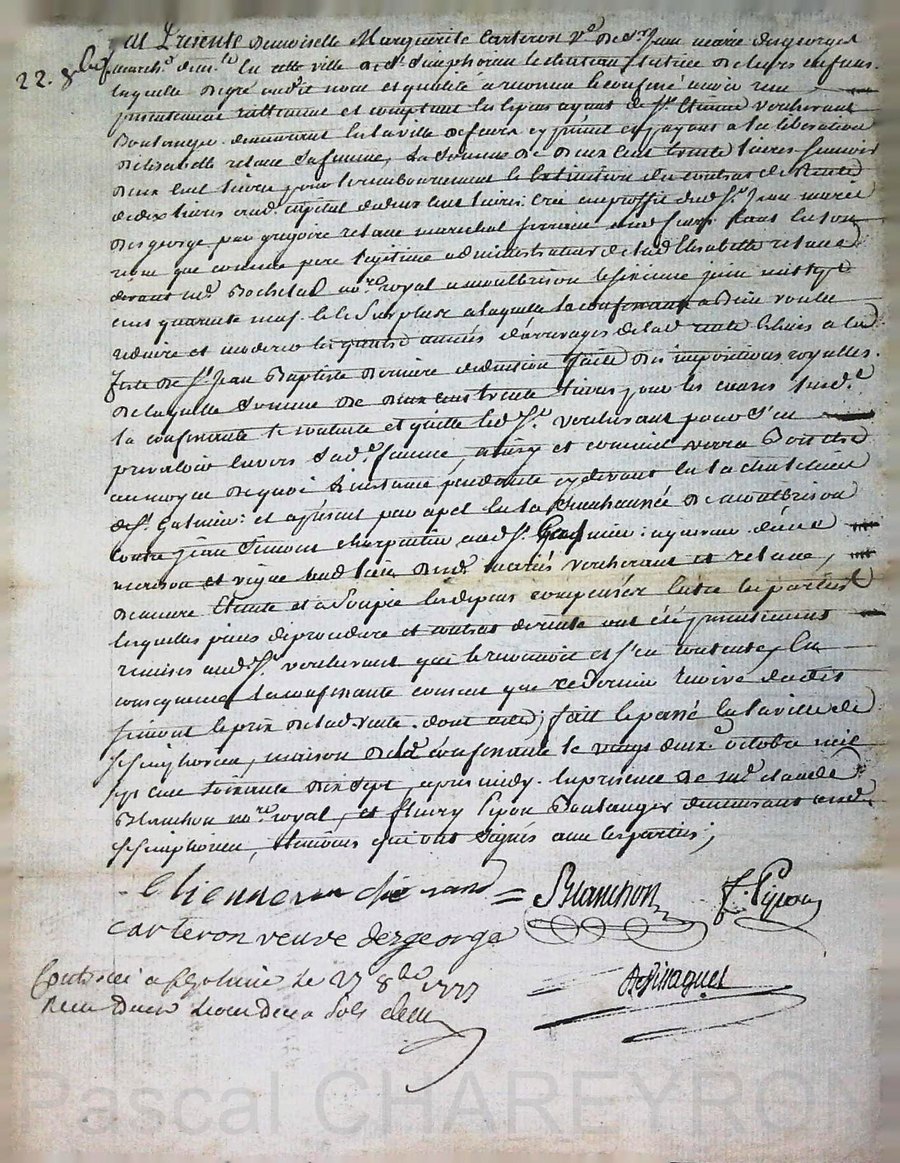 22. 8bre
at Presente Demoiselle Marguerite Carteron Ve De Sr Jean marie desgeorges
march. en la ville de St Simphorien le chateau tutrice De leurs enfans.
laquelle De gré audit nom et qualité a reconnu et confessé avoir reçu
presentement et comptant les especes ayant de Sr Etienne Vercherant
Boulanger demeurant en la ville de feurs cy présent et payant a la libération
D'elizabelle retane sa femme, La Somme De Deux cent trente livres Scavoir
Deux cent livres pour le remboursement et Extinction du contrat de Rente
de dix livres aud. capital de deux cent livres créé au proffit dud. Sr Jean marie
Des george par grégoire retane marechal aud feurs tant en son
nom que comme pere légitime administrateur de lad Elisabette retane
devant me Bochetal nore royal a montbrison le sixieme juin mil sept
cent quarante neuf. et le Surplus a laquelle la confessante a bien voulu
réduire et moderer les années d'arrerages de lad. rente échues a la
feste De St Jean Baptiste Derniere déduction faite Des impositions royalles.
De laquelle Somme De deux cent trente livres pour les causes susd.
la confessante se contente et quitte led Sr. Vercherant pour s'en
prevaloir envers Sad. femme, ainsy et comme verra Bon etre
au moyen De quoi L'instance pendante cy devant en la chatelenie
de St Galmier et a present par apel en la Senechaussée De montbrison
contre jean Simont charpentier aud St Galmier acquereur d'une
maison et vigne aud lieu desd. mariés Vercherant et retane,
Demeure Eteinte et assoupie les depens compensés entre les parties
lesquelles pieces de procedure et contrat de rente ont été presentement
remises aud Sr. Vercherant qui le reconnoit et s'en contente, En
consequence la confessante consent que ce Dernier retire dudit
Simont le prix de lad vente. dont acte; fait et passé en la ville de
St Simphorien, maison de la confessante le vingt deux octobre mil
sept cent soixante dix sept, après midy. En présence de me claude
Blanchon nore royal, et fleury Pipon Boulanger demeurant aud.
St Simphorien, témoins qui ont signés avec les parties;
Etienne Blanchon F. Pipon
carteron veuve desgeorge
Controlé a St Galmier Le 27 8bre 1777
Recu Deux livres Deux Sols
Pascal CHAREYRON